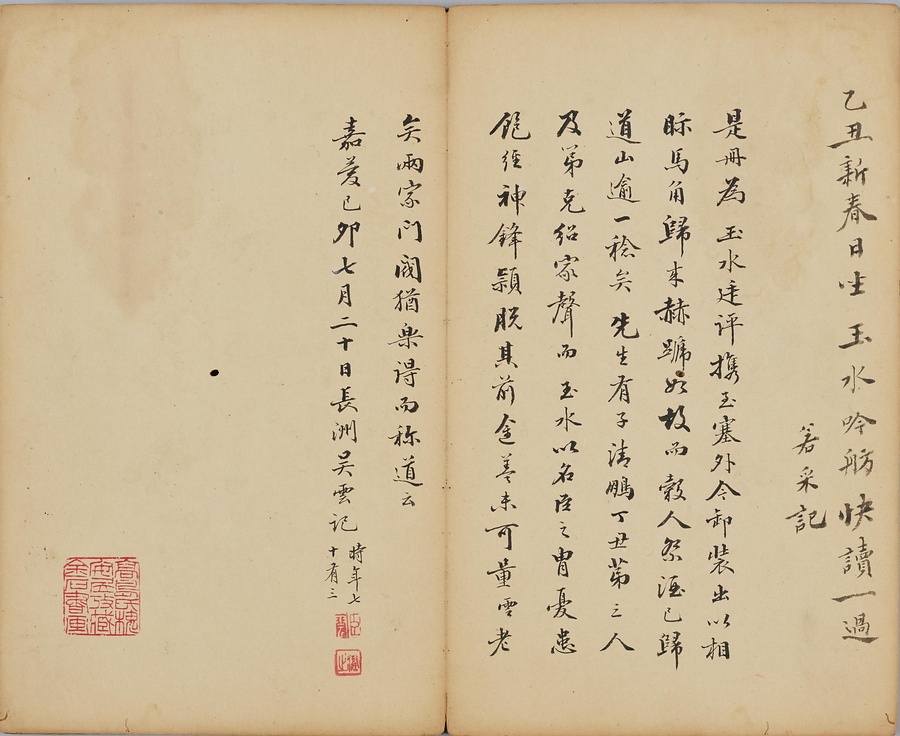 乙丑新春日坐玉水吟舫快讀一過
箬采記
是冊為玉水廷評攜至塞外今卸裝出以相
眎馬角歸來赫蹏如故而穀人祭酒已歸
道山逾一稔矣先生有子清鵬丁丑第三人
及第克紹家聲而玉水以名臣之胄憂患
飽經神鋒穎脫其前途蓋未可量雲老
矣兩家門閥猶樂得而称道云
嘉慶己卯七月二十日長洲吴雲記
時年七
十有三